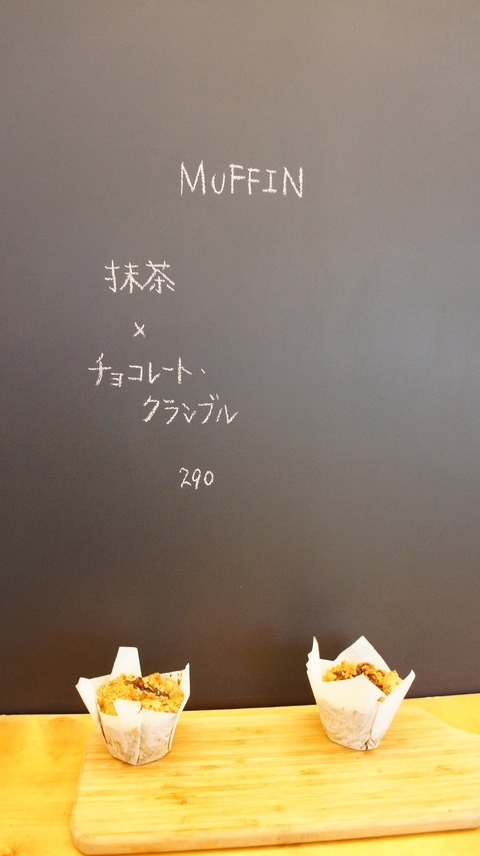 MUFFIN
抹茶
×
チョコレート・
クランブル
290